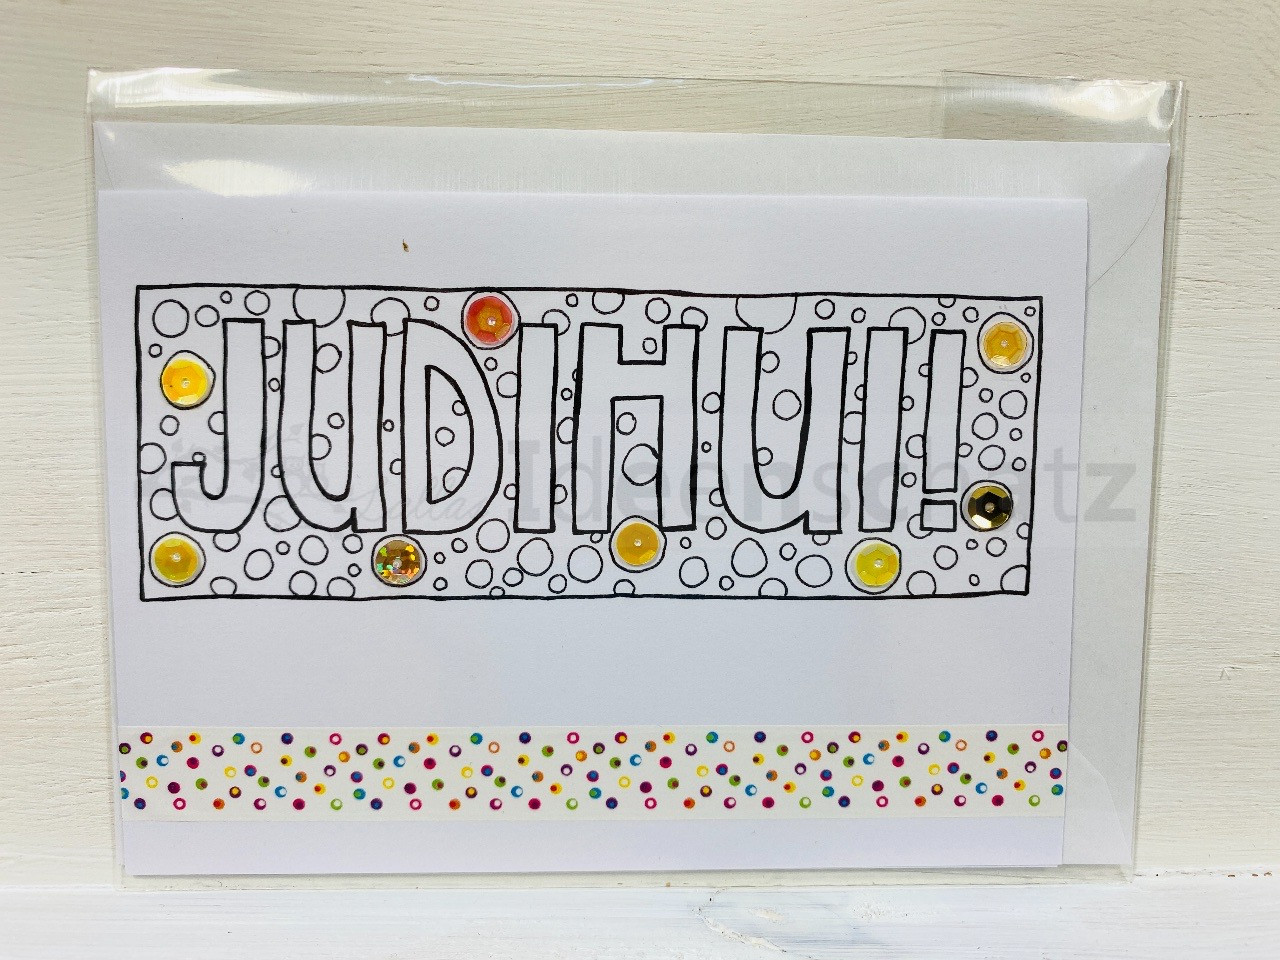 JUDIHUI!
Ideenschatz